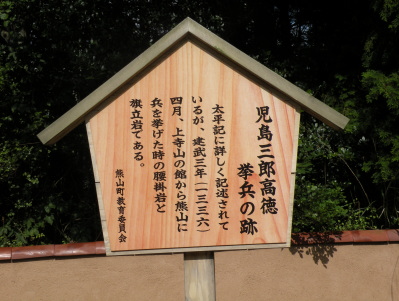 児島三郎高徳
挙兵の跡
太平記に詳しく記述されて
いるが、建武三年(一三三六)
四月、上寺山の館から熊山に
兵を挙げた時の腰掛岩と
旗立岩である。
熊山町教育委員会